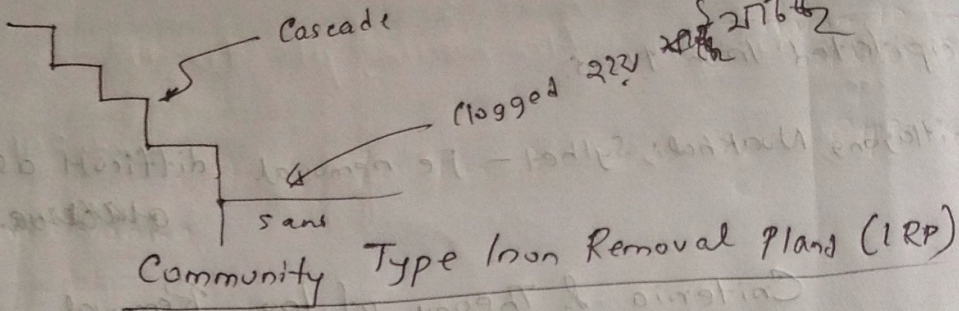 Cascade
Clogged হয়ে
sand
Community Type Iron Removal Pland (IRP)